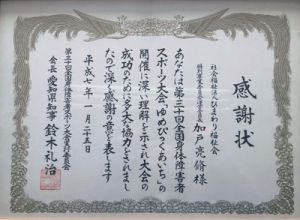 感謝状
社会福祉法人ひまわり福祉会
加戸亮脩様
あなたは第三十回全国身体障害者
スポーツ大会「ゆめぴっくあいち」の
開催に深い理解を示され大会の
成功のために多大な協力をされまし
たので深く感謝の意を表します
平成七年一月二十五日
第三十回全国身体障害者スポーツ大会実行委員会
会長 愛知県知事 鈴木礼治